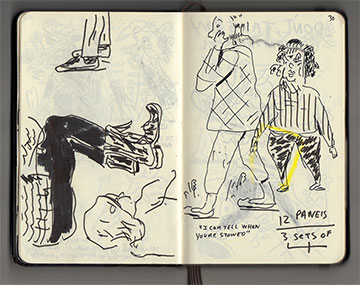 30
"I CAN TELL WHEN
YOU'RE STONED"
12 PANELS
3 SETS OF
4